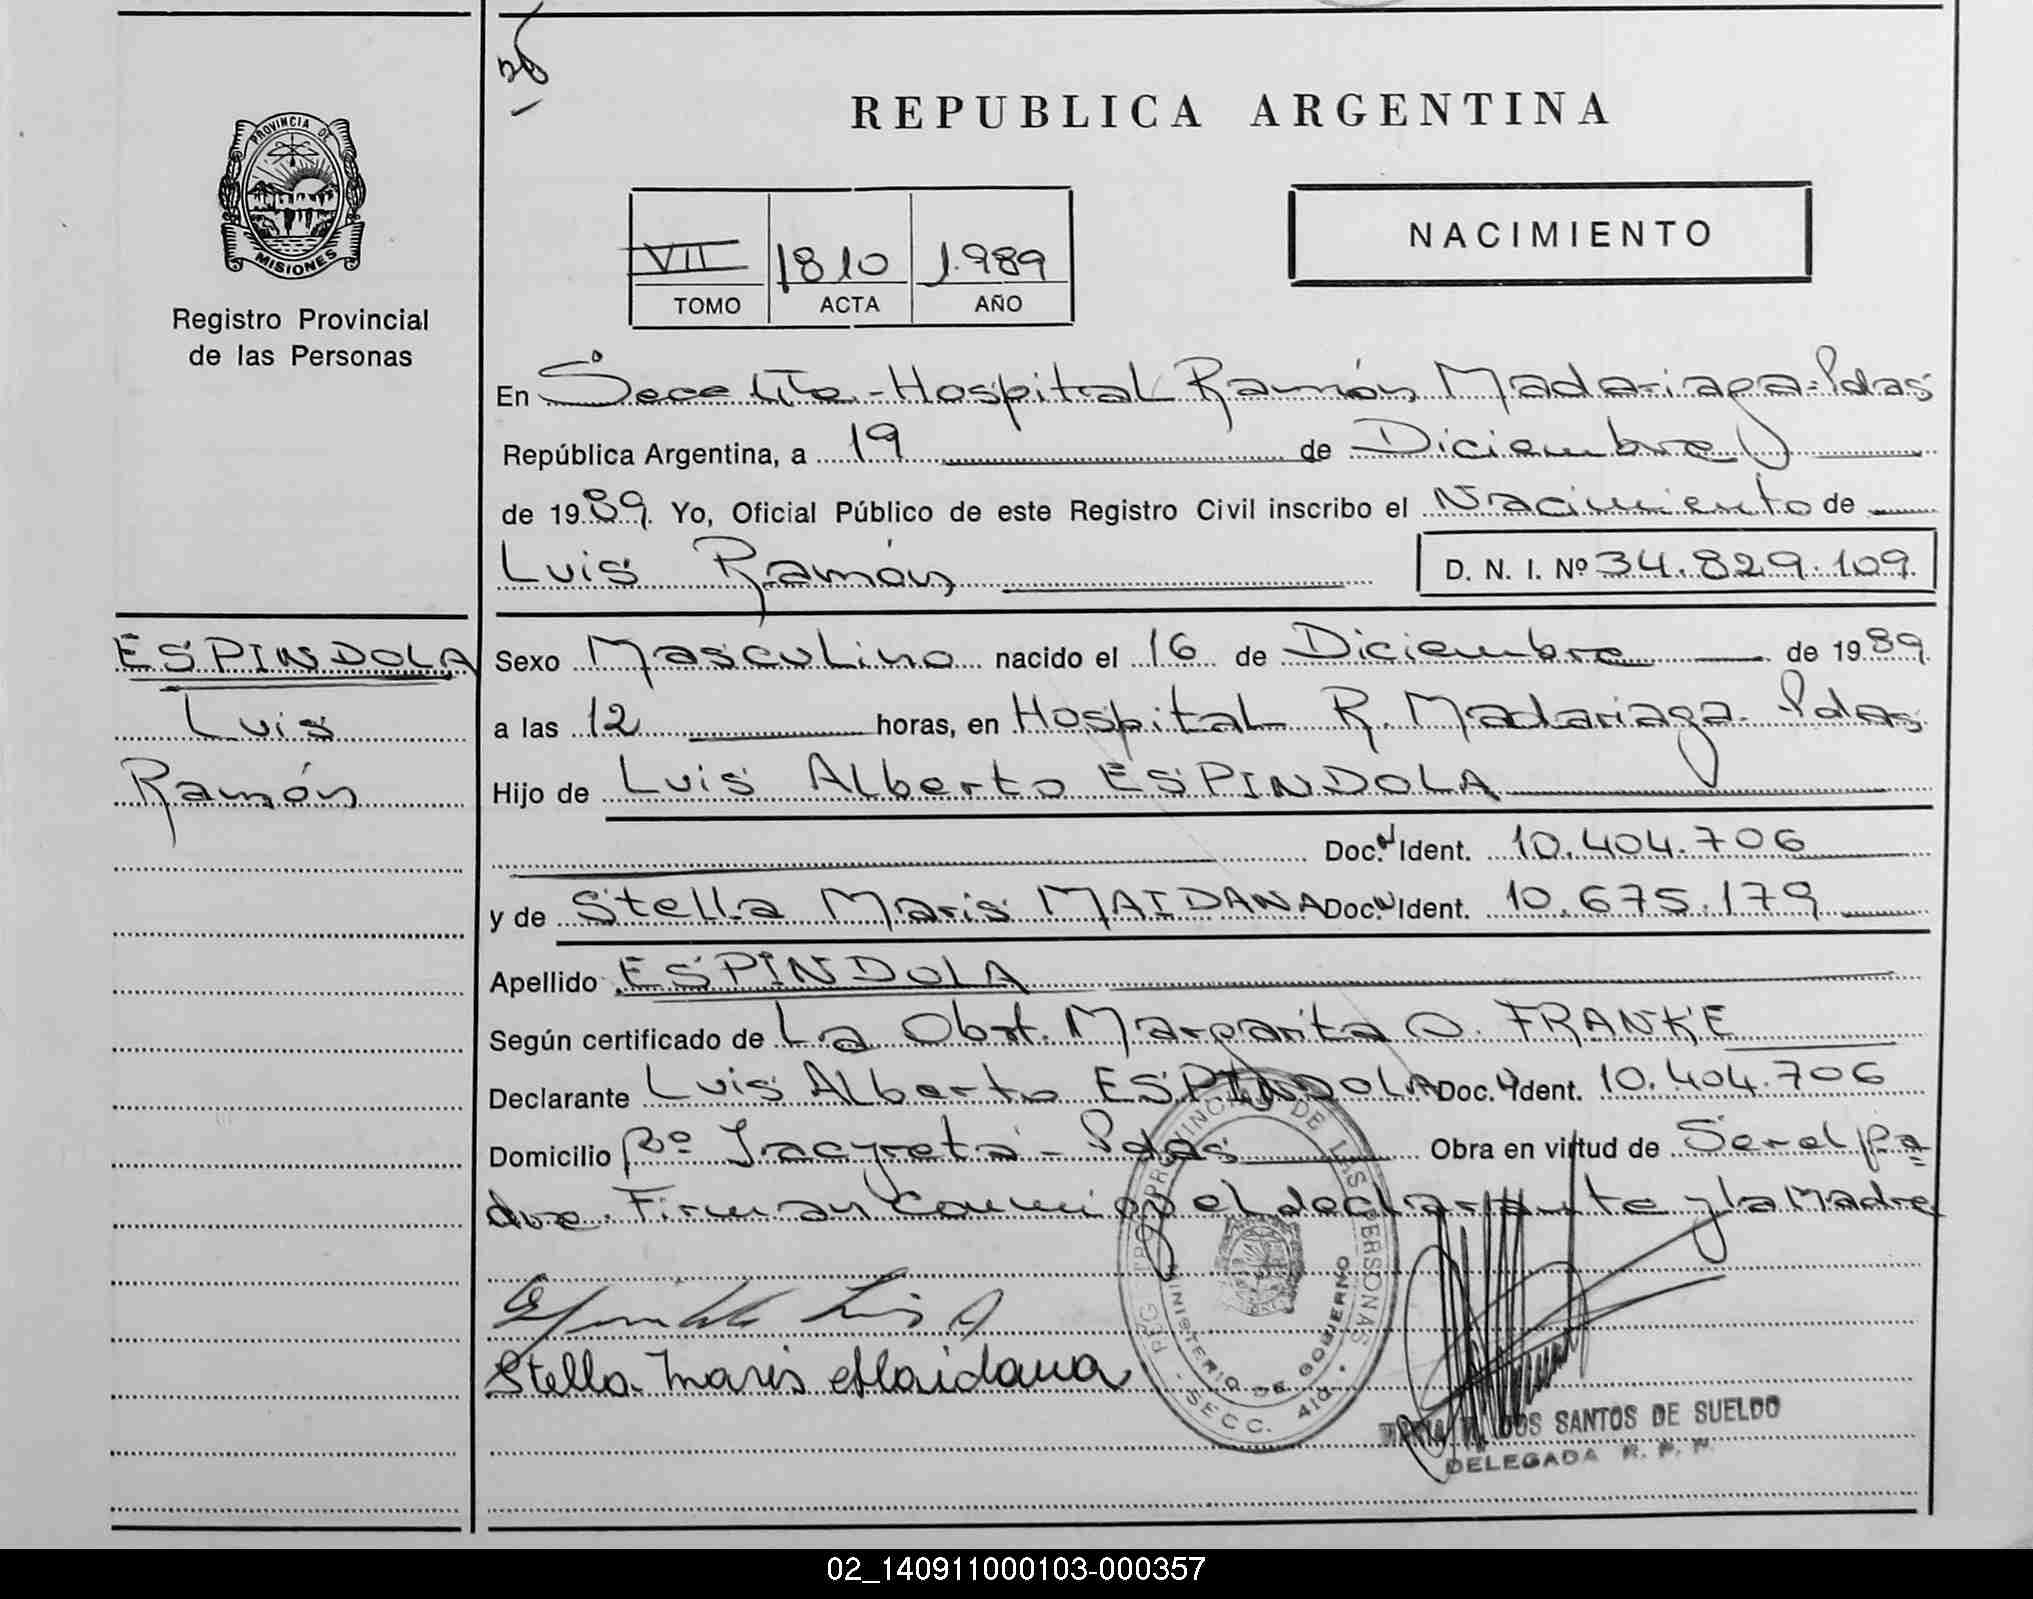 REPUBLICA ARGENTINA
PROVINCIA DE
MISIONES
Registro Provincial
de las Personas
NACIMIENTO
VII 1810 1.989
TOMO ACTA AÑO
En Secc 4ta - Hospital Ramón Madariaga - Pdas
República Argentina, a 19 de Diciembre
de 1989. Yo, Oficial Público de este Registro Civil inscribo el Nacimiento de
Luis Ramón D. N. I. Nº 34.829.109
ESPINDOLA
Luis
Ramón
Sexo Masculino nacido el 16 de Diciembre de 1989
a las 12 horas, en Hospital R. Madariaga. Pdas
Hijo de Luis Alberto ESPINDOLA
Doc. N Ident. 10.404.706
y de Stella Maris MAIDANA Doc. N Ident. 10.675.179
Apellido ESPINDOLA
Según certificado de La Obst. Margarita O. FRANKE
Declarante Luis Alberto ESPINDOLA Doc. N Ident. 10.404.706
Domicilio Bº Yacyreta - Pdas Obra en virtud de Ser el pa
dre. Firman conmigo el declarante y la Madre
Stella Maris Maidana
REG. PROVINCIAL DE LAS PERSONAS
MINISTERIO DE GOBIERNO
SECC. 4ta
DOS SANTOS DE SUELDO
DELEGADA R. P. P.
02_140911000103-000357